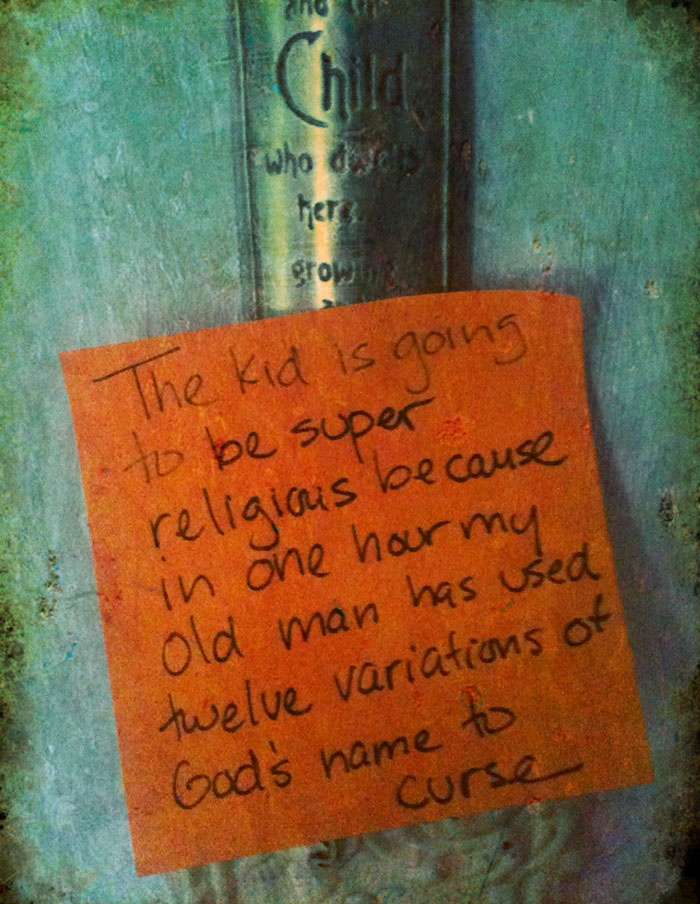 and
Child
who dwells
here...
growing
The kid is going
to be super
religious because
in one hour my
old man has used
twelve variations of
God's name to
curse